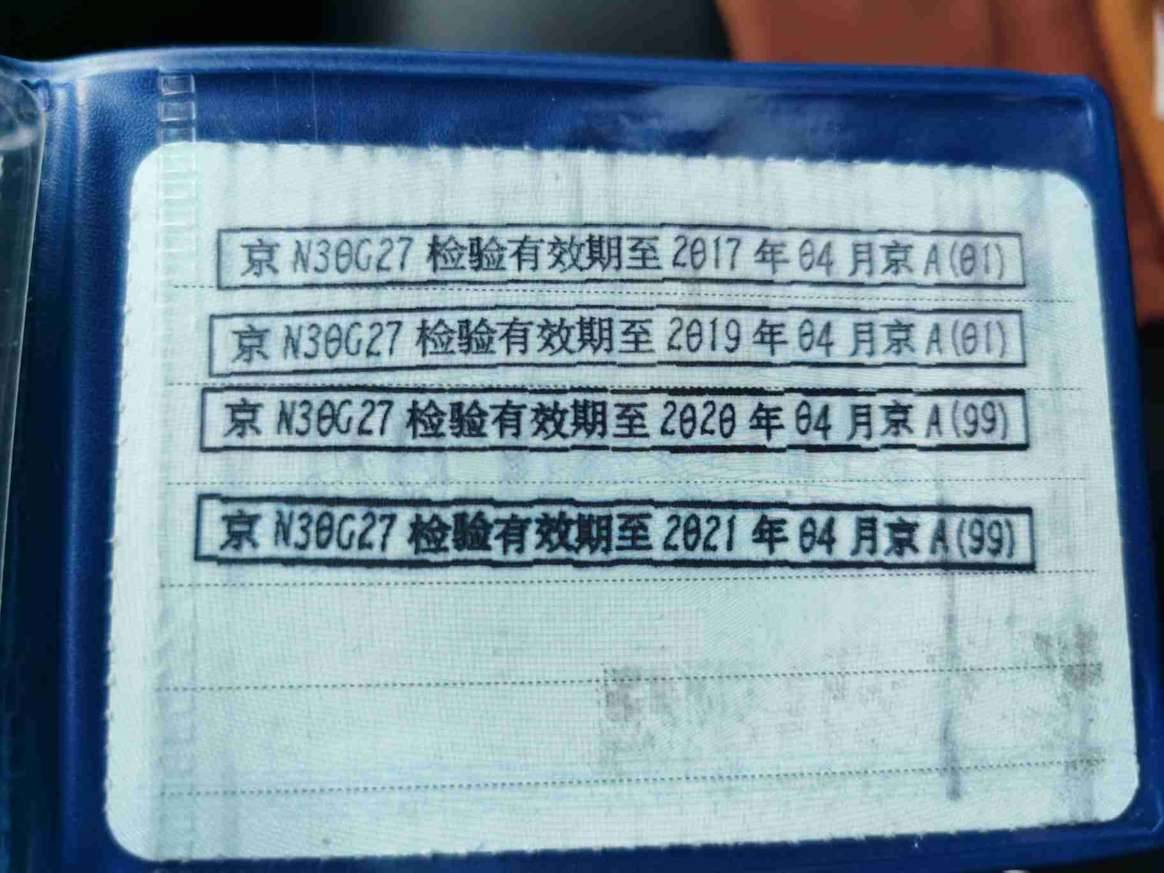 京 N30G27 检验有效期至 2017 年 04 月京 A(01)
京 N30G27 检验有效期至 2019 年 04 月京 A(01)
京 N30G27 检验有效期至 2020 年 04 月京 A(99)
京 N30G27 检验有效期至 2021 年 04 月京 A(99)